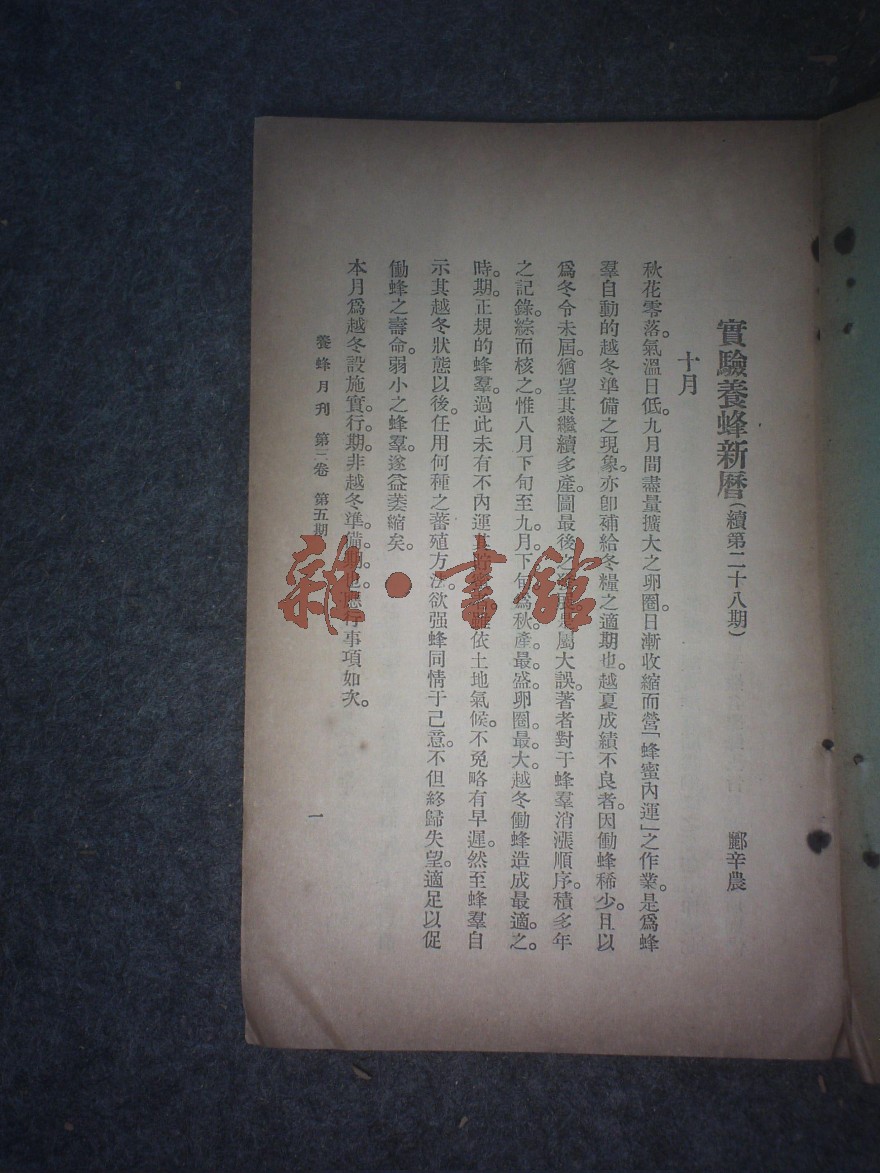 實驗養蜂新曆(續第二十八期) 酈辛農
十月
秋花零落。氣溫日低。九月間盡量擴大之卵圈。日漸收縮而營「蜂蜜內運」之作業。是爲蜂
羣自動的越冬準備之現象。亦卽補給冬糧之適期也。越夏成績不良者。因働蜂稀少。且以
爲冬令未屆。猶望其繼續多產。圖最後之屬大誤。著者對于蜂羣消漲順序。積多年
之記錄。綜而核之。惟八月下旬至九月下旬。爲秋產最盛。卵圈最大。越冬働蜂造成最適之。
時期。正規的蜂羣。過此未有不內運其依土地氣候。不免略有早遲。然至蜂羣自
示其越冬狀態以後。任用何種之蕃殖方法。欲强蜂同情于己意。不但終歸失望。適足以促
働蜂之壽命。弱小之蜂羣。遂益萎縮矣。
本月爲越冬設施實行。期。非越冬準備行事項如次。
養蜂月刊 第三卷 第五期
一
雜·書館